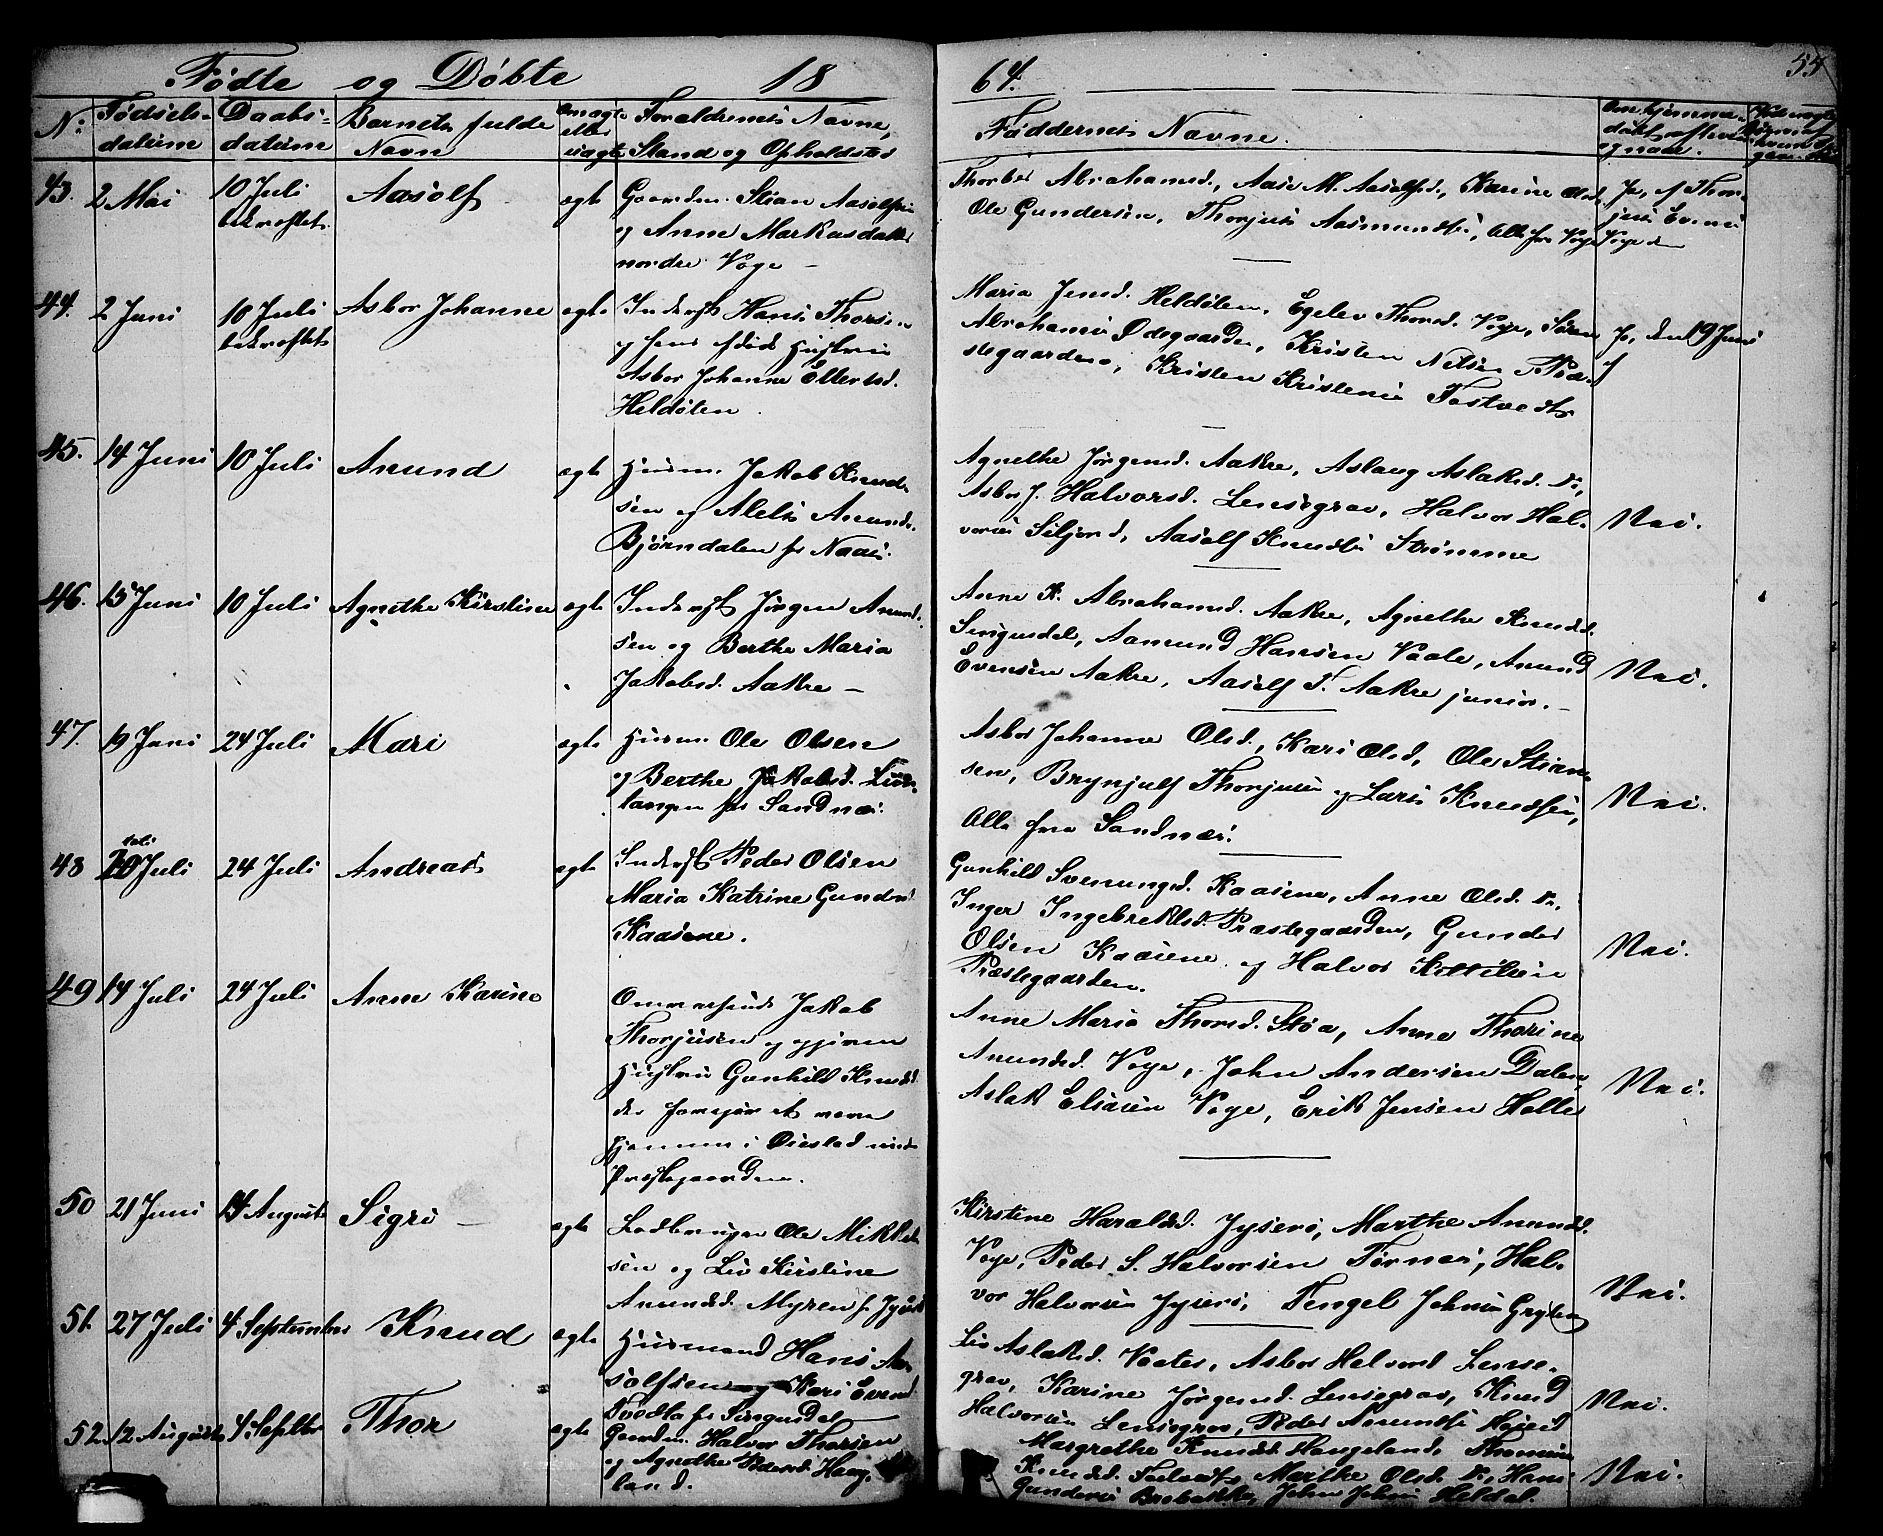 Fødte og Døbte 18
64.
55
No
Fødsels-
datum
Daabs-
datum
Barnets fulde
Navn
om ægte
eller
uægte
Forældrenes Navne,
Stand og Opholdsted
Faddernes Navne.
43. 2 Mai 10 Juli Aasolf ægte Gaardm. Stian Aasolfsen
bekræftet og Anne Markusdatter
nordre Vege –
Abrahamsd., Aase M. Aasolfsd., Karine Olsd.
Ole Gundersen, Thorjus Aasmundsen, Alle fra Vege
44. 2 Juni 10 Juli Asbor Johanne ægte Inderst Hans Thorsen
bekræftet og hans Hustru
Asbor Johanne Ellevsd.
Heldølen.
Maria Jensd. Heldølen, Egelev Thorsd. Vege, Søren
Abrahamsen Ødegaarden, Kristen Nilsen Præ-
stegaardene, Kristen Kristensen Tostvedt
Ja, den 19 Juni
45. 14 Juni 10 Juli Anund ægte Husm. Jakob Knud-
sen og Alelis Anunds.
Bjørndalen fr Naas.
Agnethe Jørgensd. Aakre, Aslaug Aslaksd. Do,
Asbor J. Halvorsd. Lensegrav, Halvor Hal-
vorsen Siljord, Aasolf Knudsen Strømme
Nei.
46. 15 Juni 10 Juli Agnethe Kirstine ægte Inderst Jørgen Anund-
sen og Berthe Maria
Jakobsd. Aakre –
Anne K. Abrahamsd. Aakre, Agnethe Knudsd.
Singusdal, Aamund Hansen Vaale, Anund
Evensen Aakre, Aasolf T. Aakre junior. –
Nei.
47. 19 Juni 24 Juli Mari ægte Husm. Ole Olsen
og Berthe Jakobsd.
tangen fr Sandnæs.
Asbor Johanne Olsd., Kari Olsd, Ole Stian-
sen, Brynjulf Thorjusen og Lars Knudsen,
Alle fra Sandnæs.
Nei.
48 20 Juli 24 Juli Andreas ægte Inderst Peder Olsen
Maria Katrine Gundersd
Kaasene.
Gunhild Svenungsd. Kaasene, Anne Olsd. Do.
Inger Ingebrektsd. Præstegaarden, Gunder
Olsen Kaasene og Halvor Kittilsen
Præstegaarden.
Nei.
49 14 Juli 24 Juli Anne Karine
Omreisende Jakob
Thorjusen og
Hustru Gunhild Knudsd.
hjemme i Øiestad
Præstegaarden.
Anne Maria Thorsd. Støa, Anne Thorine
Anundsd. Vege, John Andersen Dalen
Aslak Eliasen Vege, Erik Jensen Holte
Nei.
50 21 Juni 14 August Sigri – ægte Ole Mikkel-
sen og Liv Kirstine
Anundsd. Myren fr
Kirstine Haraldsd. Marthe Anundsd.
Vege, Peder S. Halvorsen Tornes, Hal-
vor Halvorsen Tengel Johnsen
Nei.
51. 27 Juli 4 September Knud ægte Husmand Hans Aa-
solfsen og Kari Evensd.
Tvedta fr Singusdal
Liv Aslaksd. Asbor Halvorsd Lense-
grav, Karine Jørgensd. Lensegrav, Knud
Halvorsen Lensegrav, Peder Anundsen
Nei.
52. 12 August 4 Septbr Thor ægte Gaardm. Halvor Thorsen
og Agnethe Pedersd. Hauge-
land.
Margrethe Knudsd. Haugeland,
Knudsd. Marthe Olsd. Do, Hans
Gundersen John Johnsen Heldal.
Nei.